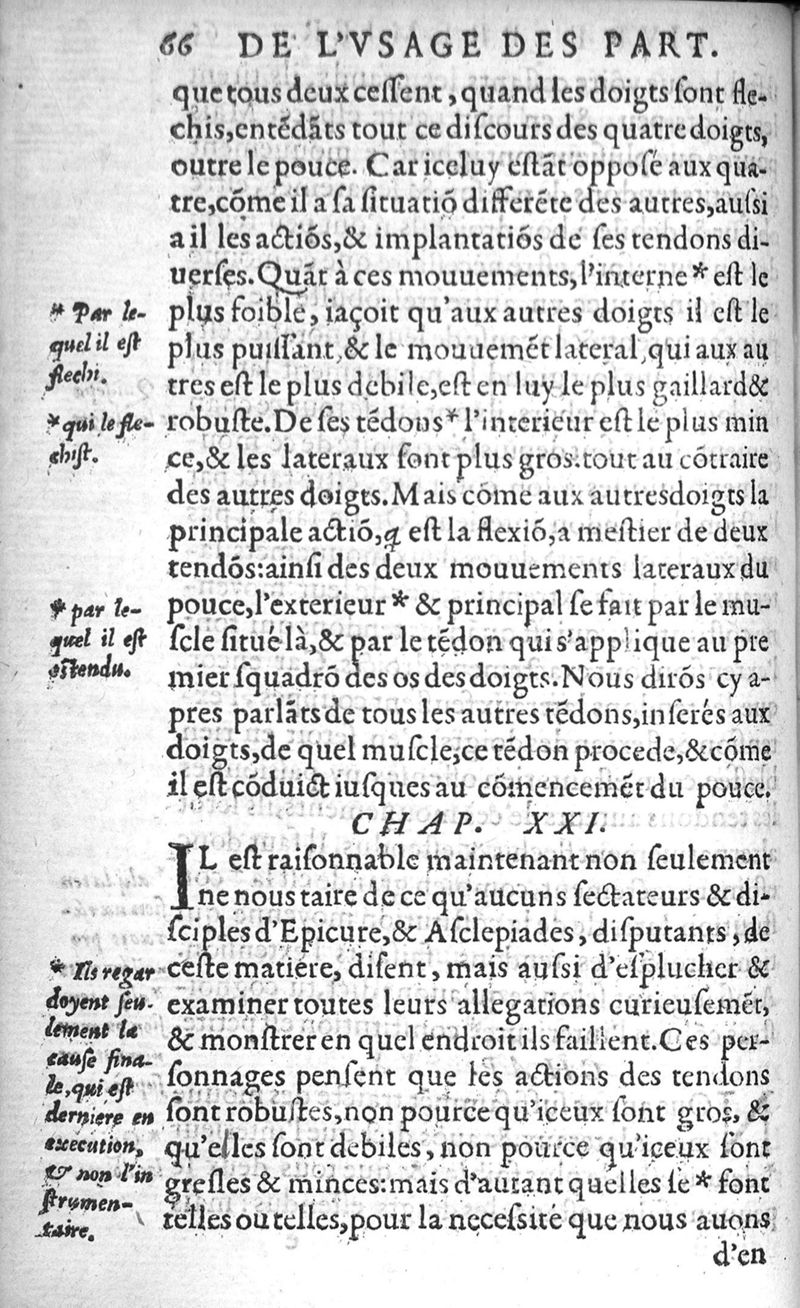 66 DE L'VSAGE DES PART.
que tous deux cessent, quand les doigts sont fle-
chis, entēdāts tout ce discours des quatre doigts,
outre le pouce. Car iceluy estāt opposé aux qua-
tre, cōme il a sa situatiō differēte des autres, aussi
a il les actiōs, & implantatiōs de ses tendons di-
uerses. Quāt à ces mouuements, l'interne * est le
plus foible, iaçoit qu'aux autres doigts il est le
plus puissant, & le mouuemēt lateral, qui aux au
tres est le plus debile, est en luy le plus gaillard &
robuste. De ses tēdons * l'interieur est le plus min
ce, & les lateraux sont plus gros: tout au cōtraire
des autres doigts. Mais cōme aux autres doigts la
principale actiō, q̄ est la flexiō, a mestier de deux
tendōs: ainsi des deux mouuements lateraux du
pouce, l'exterieur * & principal se fait par le mu-
scle situé là, & par le tēdon qui s'applique au pre
mier squadrō des os des doigts. Nous dirōs cy a-
pres parlāts de tous les autres tēdons, inserés aux
doigts, de quel muscle, ce tēdon procede, & cōme
il est cōduict iusques au cōmencemēt du pouce.
* Par le-
quel il est
flechi.
* qui le fle-
chist.
* par le-
quel il est
estendu.
CHAP. XXI.
IL est raisonnable maintenant non seulement
ne nous taire de ce qu'aucuns sectateurs & di-
sciples d'Epicure, & Asclepiades, disputants, de
ceste matiere, disent, mais aussi d'esplucher &
examiner toutes leurs allegations curieusemēt,
& monstrer en quel endroit ils faillent. Ces per-
sonnages pensent que les actions des tendons
sont robustes, non pource qu'iceux sont gros, &
qu'elles sont debiles, non pource qu'iceux sont
gresles & minces: mais d'autant quelles se * font
telles ou telles, pour la necessité que nous auons
* Ils regar
doyent seu-
lement la
cause fina-
le, qui est
derniere en
execution,
& non l'in
strumen-
taire.
d'en